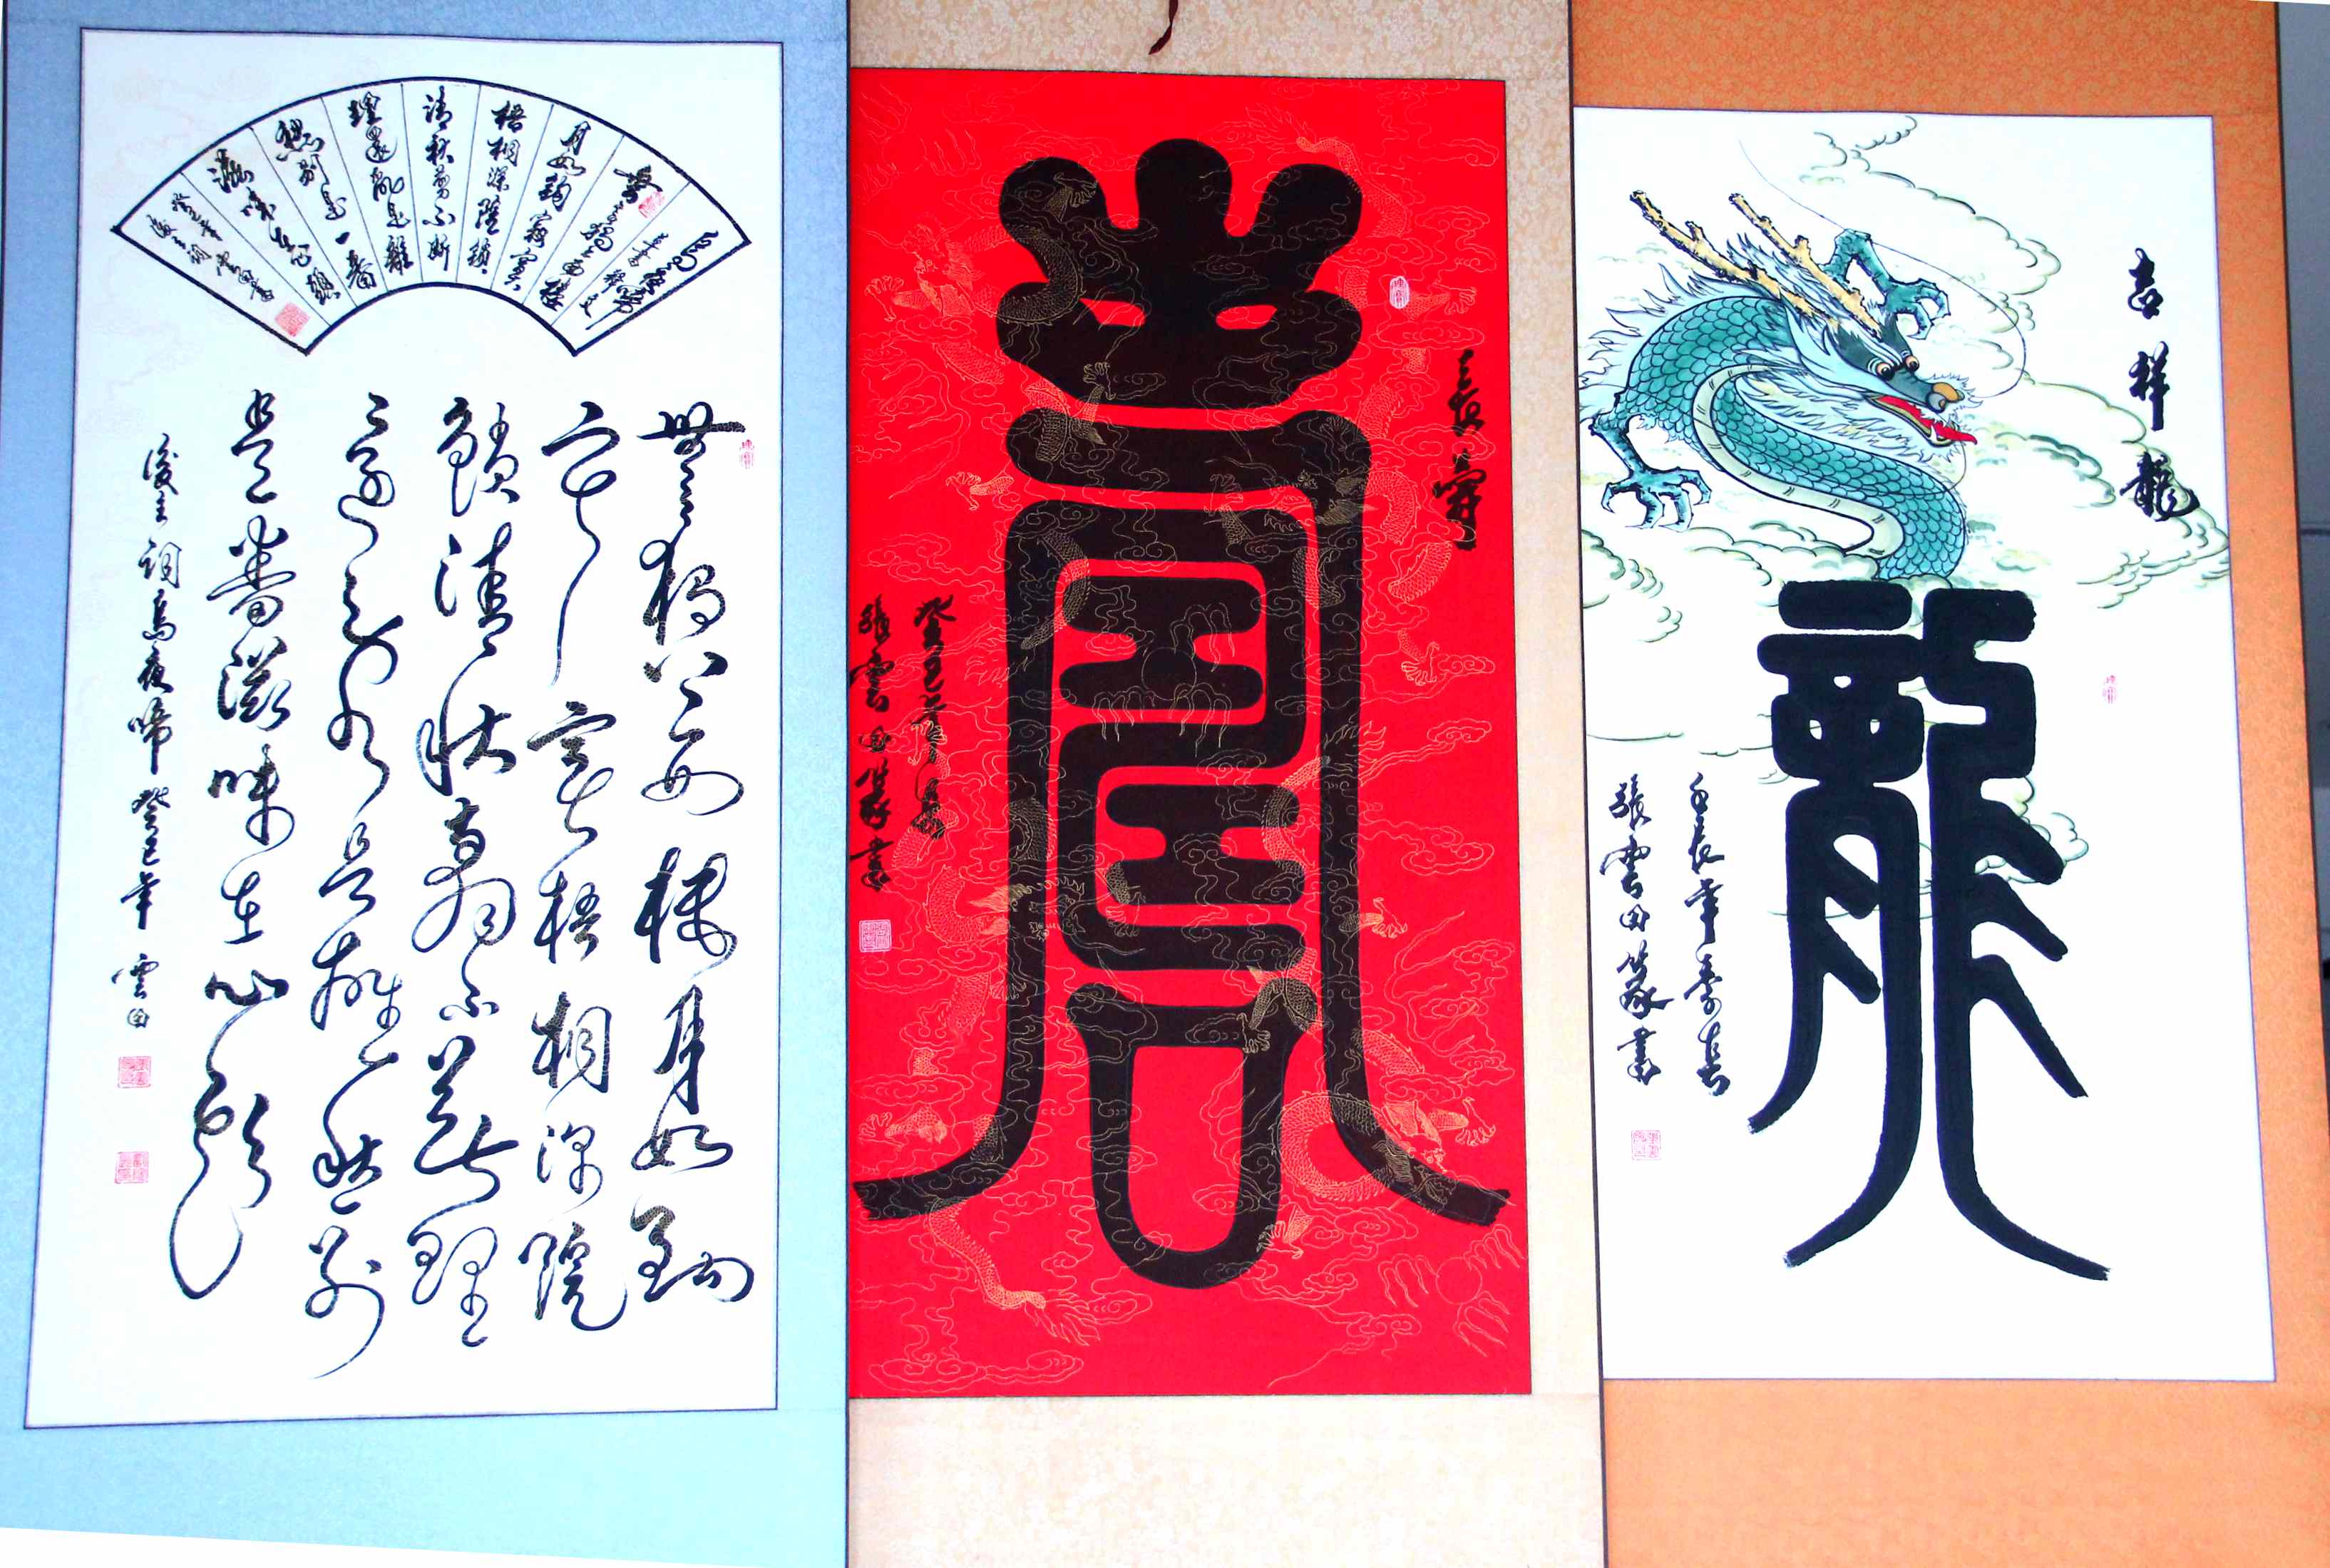 烏夜啼
無言獨上西樓
月如鉤寂寞
梧桐深院鎖
清秋剪不斷
理還亂是離
愁別是一番
滋味在心頭
癸巳年雲田書
後主詞
無言獨上西樓月如鉤
寂寞梧桐深院
鎖清秋剪不斷理
還亂是離愁別
是一番滋味在心頭
後主詞烏夜啼癸巳年雲田
長壽
壽
癸巳年
張雲田篆書
吉祥龍
龍
壬辰年
張雲田篆書